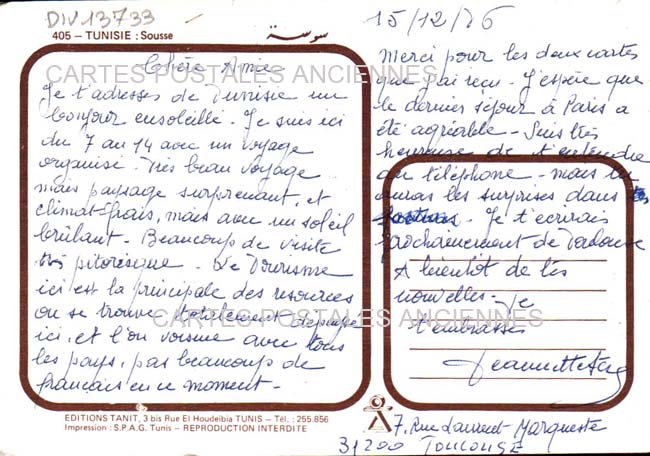 DIV13733
405 – TUNISIE : Sousse
سوسة
15/12/86
CARTES POSTALES ANCIENNES
Chère Amie
Je t'adresses de Tunisie un
bonjour ensoleillé. Je suis ici
du 7 au 14 avec un voyage
organisé. Très beau voyage
mais paysage surprenant, et
climat frais, mais avec un soleil
brûlant. Beaucoup de visite
très pitoresque. Le Tourisme
ici est la principale des resources
on se trouve totalement dépaysé
ici, et l'on voisine avec tous
les pays, pas beaucoup de
français en ce moment.
Merci pour les deux cartes
que j'ai reçu. J'espère que
le dernier séjour à Paris a
été agréable. Suis très
heureuse de t'entendre
au téléphone. mais tu
auras les surprises dans
Je t'ecrirais
prochainement de Toulouse
A bientôt de tes
nouvelles. Je
t'embrasses
Jeannette
CARTES POSTALES ANCIENNES
EDITIONS TANIT, 3 bis Rue El Houdeibia TUNIS – Tél. : 255.856
Impression : S.P.A.G. Tunis – REPRODUCTION INTERDITE
7, Rue Laurent-Marqueste
31200 TOULOUSE